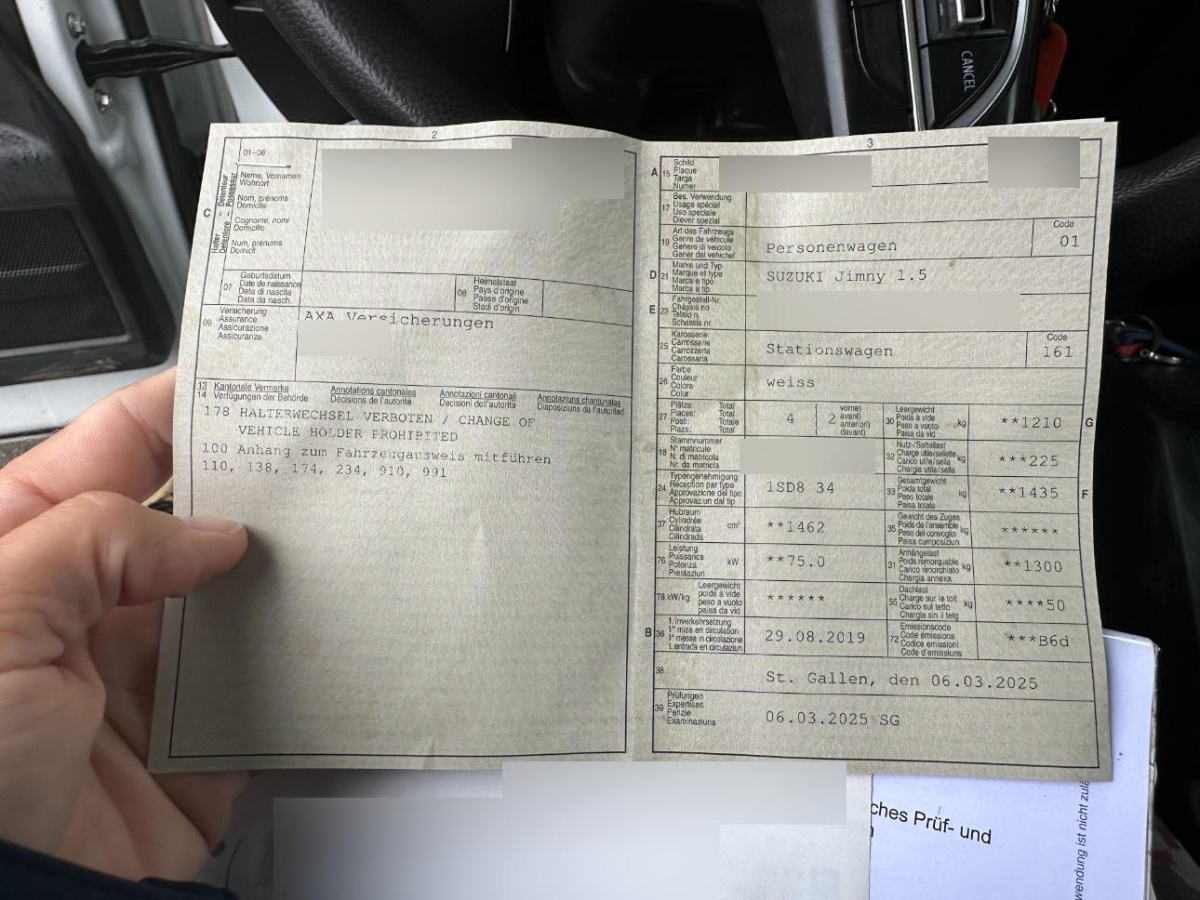 CANCEL
2
01-06
C
Halter Détenteur
Detentore Possessur
Name, Vornamen
Wohnort
Nom, prénoms
Domicile
Cognome, nomi
Domicilio
Num, prenums
Domicil
07
Geburtsdatum
Date de naissance
Data di nascita
Data da nasch.
08
Heimatstaat
Pays d'origine
Paese d'origine
Stadi d'origin
09
Versicherung
Assurance
Assicurazione
Assicuranza
AXA Versicherungen
13
14
Kantonale Vermerke
Verfügungen der Behörde
Annotations cantonales
Décisions de l'autorité
Annotazioni cantonali
Decisioni dell'autorità
Annotaziuns chantunalas
Disposiziuns da l'autoritad
178 HALTERWECHSEL VERBOTEN / CHANGE OF
VEHICLE HOLDER PROHIBITED
100 Anhang zum Fahrzeugausweis mitführen
110, 138, 174, 234, 910, 991
3
A
15
Schild
Plaque
Targa
Numer
17
Bes. Verwendung
Usage spécial
Uso speciale
Diever spezial
19
Art des Fahrzeugs
Genre de véhicule
Genere di veicolo
Gener dal vehichel
Personenwagen
Code
01
D
21
Marke und Typ
Marque et type
Marca e tipo
Marca e tip
SUZUKI Jimny 1.5
E
23
Fahrgestell-Nr.
Châssis no
Telaio n.
Schassis nr.
25
Karosserie
Carrosserie
Carrozzeria
Carossaria
Stationswagen
Code
161
26
Farbe
Couleur
Colore
Colur
weiss
27
Plätze: Total
Places: Total
Posti: Totale
Plazs: Total
4
2
vorne)
avant)
anteriori)
davant)
30
Leergewicht
Poids à vide
Peso a vuoto
Paisa da vid
kg
**1210
G
18
Stammnummer
N° matricule
N. di matricola
Nr. da matricla
32
Nutz-/Sattellast
Charge utile/sellette
Carico utile/sella
Chargia utila/sella
kg
***225
24
Typengenehmigung
Réception par type
Approvazione del tipo
Approvaziun dal tip
1SD8 34
33
Gesamtgewicht
Poids total
Peso totale
Paisa totala
kg
**1435
F
37
Hubraum
Cylindrée
Cilindrata
Cilindrada
cm³
**1462
35
Gewicht des Zuges
Poids de l'ensemble
Peso del convoglio
Paisa cumposiziun
kg
******
76
Leistung
Puissance
Potenza
Prestaziun
kW
**75.0
31
Anhängelast
Poids remorquable
Carico rimorchiato
Chargia annexa
kg
**1300
78 kW/kg
Leergewicht
poids à vide
peso a vuoto
paisa da vid
******
55
Dachlast
Charge sur le toit
Carico sul tetto
Chargia sin il tetg
kg
****50
B
36
1. Inverkehrsetzung
1re mise en circulation
1a messa in circolazione
1. entrada en circulaziun
29.08.2019
72
Emissionscode
Code émissions
Codice emissioni
Code d'emissiuns
***B6d
38
St. Gallen, den 06.03.2025
39
Prüfungen
Expertises
Perizie
Examinaziuns
06.03.2025 SG
ches Prüf- und
wendung ist nicht zulä